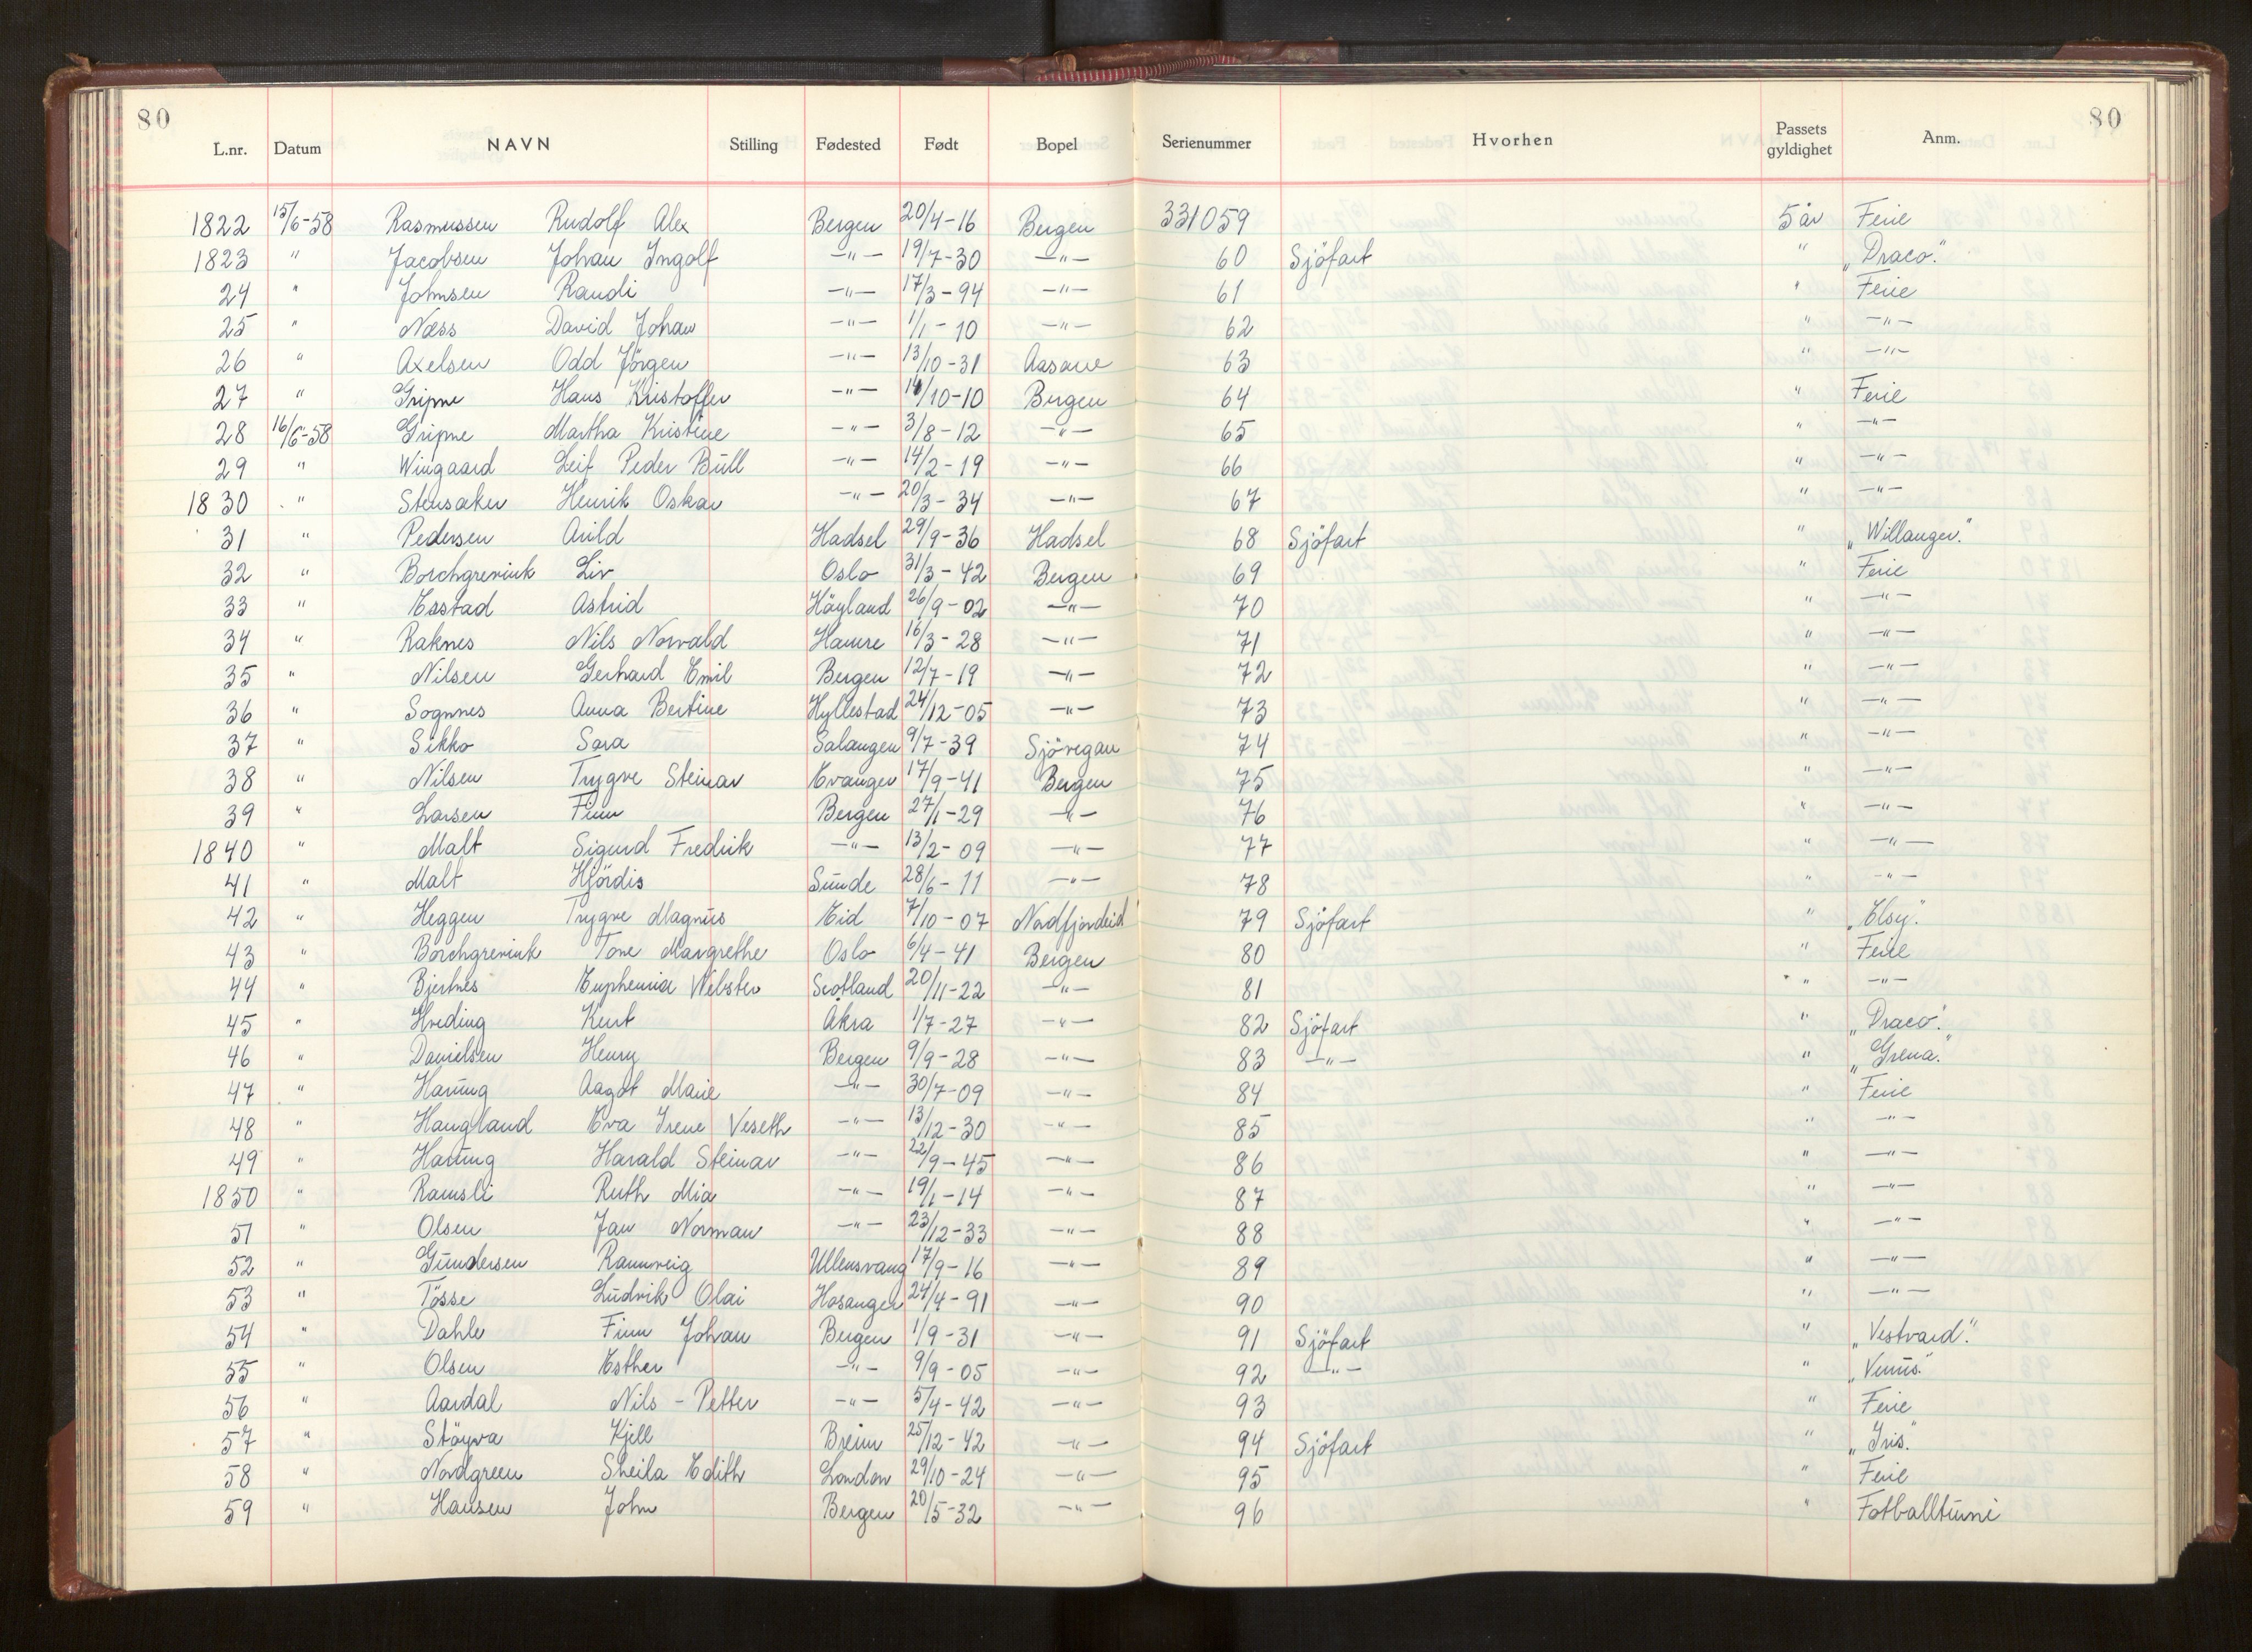 80 80
L.nr. Datum NAVN Stilling Fødested Født Bopel Serienummer Hvorhen Passets gyldighet Anm.
1822 15/6-58 Rasmussen Rudolf Alex Bergen 20/4-16 Bergen 331059 5 år Ferie
1823 " Jacobsen Johan Ingolf -"- 19/7-30 -"- 60 Sjöfart " „Draco."
24 " Johnsen Randi -"- 17/3-94 -"- 61 " Ferie
25 " Næss David Johan -"- 1/1-10 -"- 62 " -"-
26 " Axelsen Odd Jörgen -"- 13/10-31 Aasane 63 " -"-
27 " Gripne Hans Kristoffer -"- /10-10 Bergen 64 " Ferie
28 16/6-58 Gripne Martha Kristine -"- 3/8-12 -"- 65 " -"-
29 " Wingaard Leif Peder Bull -"- 14/2-19 -"- 66 " -"-
1830 " Stensaker Henrik Oskar -"- 20/3-34 -"- 67 " -"-
31 " Pedersen Arild Hadsel 29/9-36 Hadsel 68 Sjöfart " „Willanger."
32 " Borchgrevink Liv Oslo 31/3-42 Bergen 69 " Ferie
33 " Esstad Astrid Höyland 26/9-02 -"- 70 " -"-
34 " Raknes Nils Norvald Hamre 16/3-28 -"- 71 " -"-
35 " Nilsen Gerhard Emil Bergen 12/7-19 -"- 72 " -"-
36 " Sognnes Anna Bertine Hyllestad 24/12-05 -"- 73 " -"-
37 " Sikko Sara Salangen 9/7-39 Sjövegan 74 " -"-
38 " Nilsen Trygve Steinar Evanger 17/9-41 Bergen 75 " -"-
39 " Larsen Finn Bergen 27/1-29 -"- 76 " -"-
1840 " Malt Sigurd Fredrik -"- 13/2-09 -"- 77 " -"-
41 " Malt Hjördis Sunde 28/6-11 -"- 78 " -"-
42 " Heggen Trygve Magnus Eid 7/10-07 Nordfjordeid 79 Sjöfart " „Elsy."
43 " Borchgrevink Tone Margrethe Oslo 6/4-41 Bergen 80 " Ferie
44 " Bjertnes Euphemia Webster Scotland 20/11-22 -"- 81 " -"-
45 " Hveding Kent Åkra 1/7-27 -"- 82 Sjöfart " „Draco."
46 " Danielsen Henry Bergen 9/9-28 -"- 83 -"- " „Grena."
47 " Harung Aagot Marie -"- 30/7-09 -"- 84 " Ferie
48 " Haugland Eva Irene Veseth -"- 13/12-30 -"- 85 " -"-
49 " Harung Harald Steinar -"- 22/9-45 -"- 86 " -"-
1850 " Ramsli Ruth Mia -"- 19/1-14 -"- 87 " -"-
51 " Olsen Jan Norman -"- 23/12-33 -"- 88 " -"-
52 " Gundersen Rannveig Ullensvang 17/9-16 -"- 89 " -"-
53 " Tösse Ludvik Olai Hosanger 24/4-91 -"- 90 " -"-
54 " Dahle Finn Johan Bergen 1/9-31 -"- 91 Sjöfart " „Vestvard."
55 " Olsen Esther -"- 9/9-05 -"- 92 -"- " „Venus."
56 " Aardal Nils - Petter -"- 5/4-42 -"- 93 " Ferie
57 " Støyva Kjell Breim 25/12-42 -"- 94 Sjöfart " „Iris."
58 " Nordgreen Sheila Edith London 29/10-24 -"- 95 " Ferie
59 " Hansen John Bergen 20/5-32 -"- 96 " Fotballturne